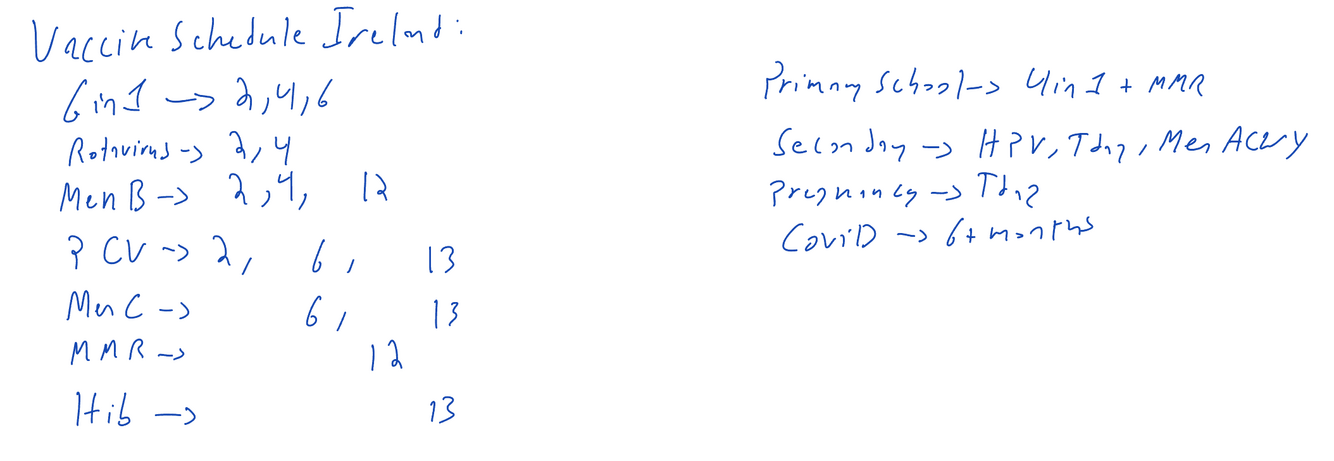 Vaccine Schedule Ireland:
6in1 -> 2,4,6
Rotavirus -> 2,4
MenB -> 2,4, 12
PCV -> 2, 6, 13
MenC -> 6, 13
MMR -> 12
Hib -> 13
Primary School -> 4in1 + MMR
Secondary -> HPV, Tdap, Men ACWY
Pregnancy -> Tdap
COViD -> 6+ months